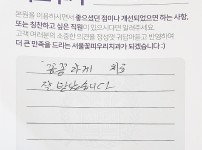 본원을 이용하시면서 좋으셨던 점이나 개선되었으면 하는 사항,
또는 칭찬하고 싶은 직원이 있으시다면 알려주세요.
고객 여러분의 소중한 의견을 정성껏 귀담아듣고 반영하며
더 큰 만족을 드리는 서울꽃피우리치과가 되겠습니다 :)
꼼꼼하게 치료
잘 받았습니다